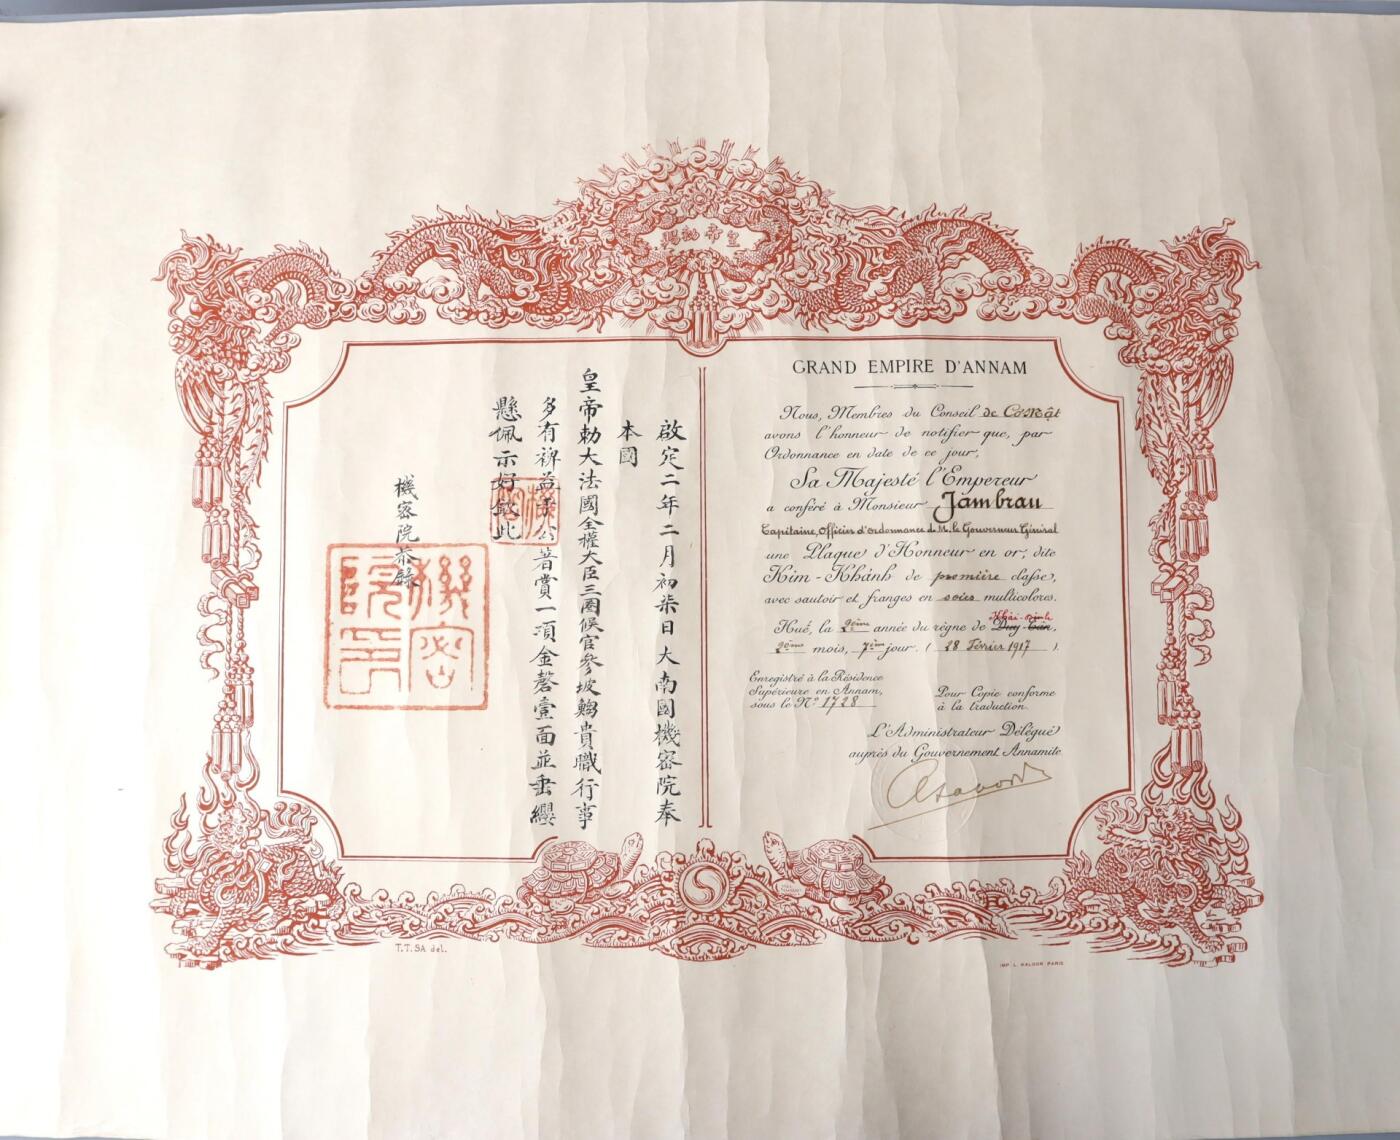 皇帝勅賜
GRAND EMPIRE D'ANNAM
Nous, Membres du Conseil de Cơ Mật
avons l'honneur de notifier que, par
Ordonnance en date de ce jour,
Sa Majesté l'Empereur
a conféré à Monsieur Jambrau
Capitaine, Officier d'ordonnance de M. le Gouverneur Général
une Plaque d'Honneur en or, dite
Kim-Khánh de première classe,
avec sautoir et franges en soies multicolores.
Khải-Định
Huế, la 2ème année du règne de Duy Tân,
2ème mois, 7ème jour. ( 28 Février 1917 ).
Enregistré à la Résidence
Supérieure en Annam,
sous le N° 1728
Pour Copie conforme
à la traduction.
L'Administrateur Délégué
auprès du Gouvernement Annamite
啟定二年二月初柒日大南國機密院奉
本國
皇帝勅大法國全權大臣三圈候官參坡𫚭貴職行事
多有裨益于公著賞一項金磬壹面並垂纓
懸佩示好欽此
機密院恭錄
機密
機密院印
T.T. SA del.
IMP. L. KALDOR PARIS